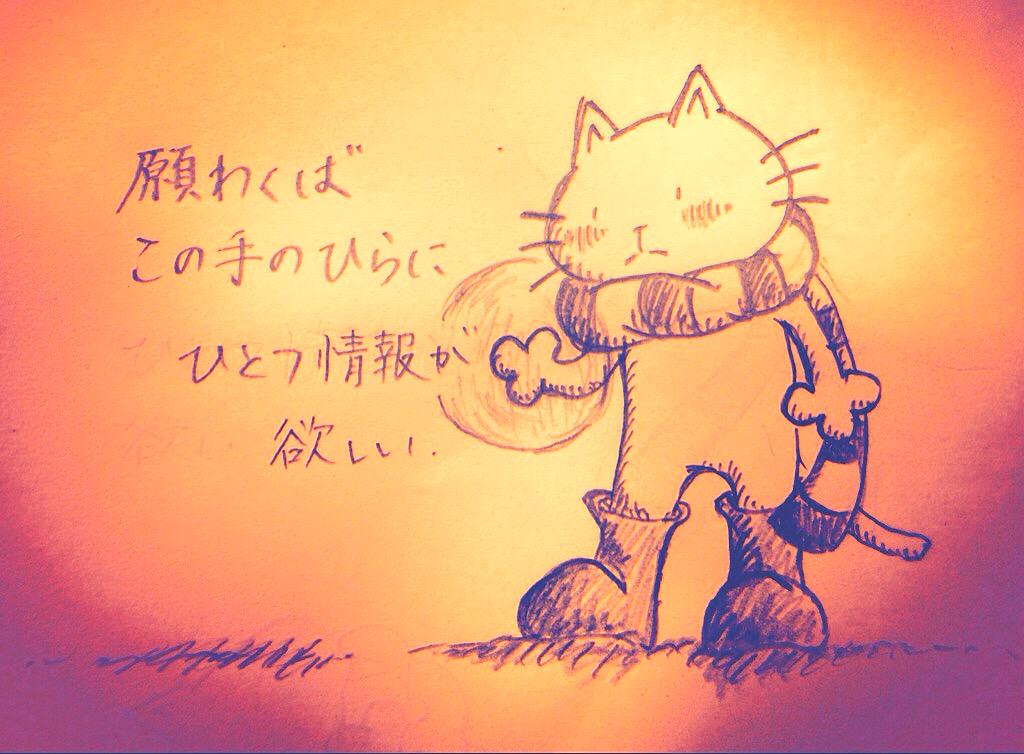 願わくば
この手のひらに
ひとつ情報が
欲しい.